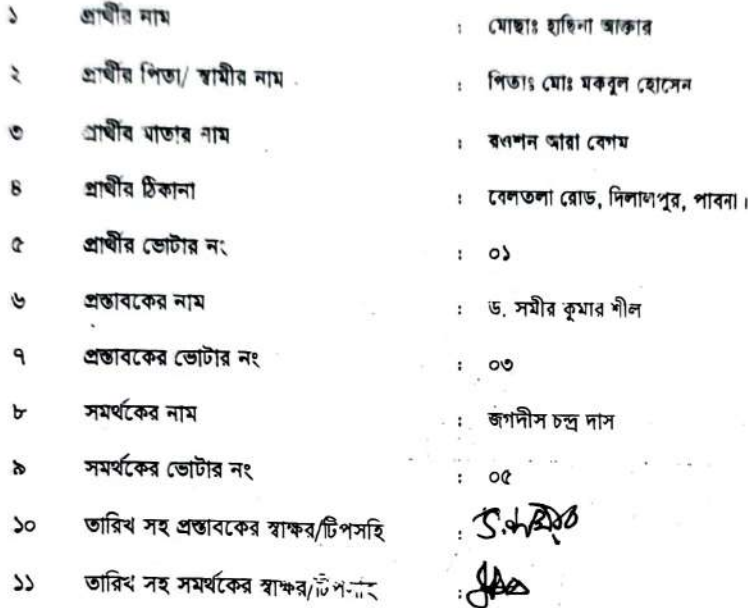 ১ প্রার্থীর নাম : মোছাঃ হাছিনা আক্তার
২ প্রার্থীর পিতা/ স্বামীর নাম : পিতাঃ মোঃ মকবুল হোসেন
৩ প্রার্থীর মাতার নাম : রওশন আরা বেগম
৪ প্রার্থীর ঠিকানা : বেলতলা রোড, দিলালপুর, পাবনা।
৫ প্রার্থীর ভোটার নং : ০১
৬ প্রস্তাবকের নাম : ড. সমীর কুমার শীল
৭ প্রস্তাবকের ভোটার নং : ০৩
৮ সমর্থকের নাম : জগদীস চন্দ্র দাস
৯ সমর্থকের ভোটার নং : ০৫
১০ তারিখ সহ প্রস্তাবকের স্বাক্ষর/টিপসহি :
১১ তারিখ সহ সমর্থকের স্বাক্ষর/টিপসহি :